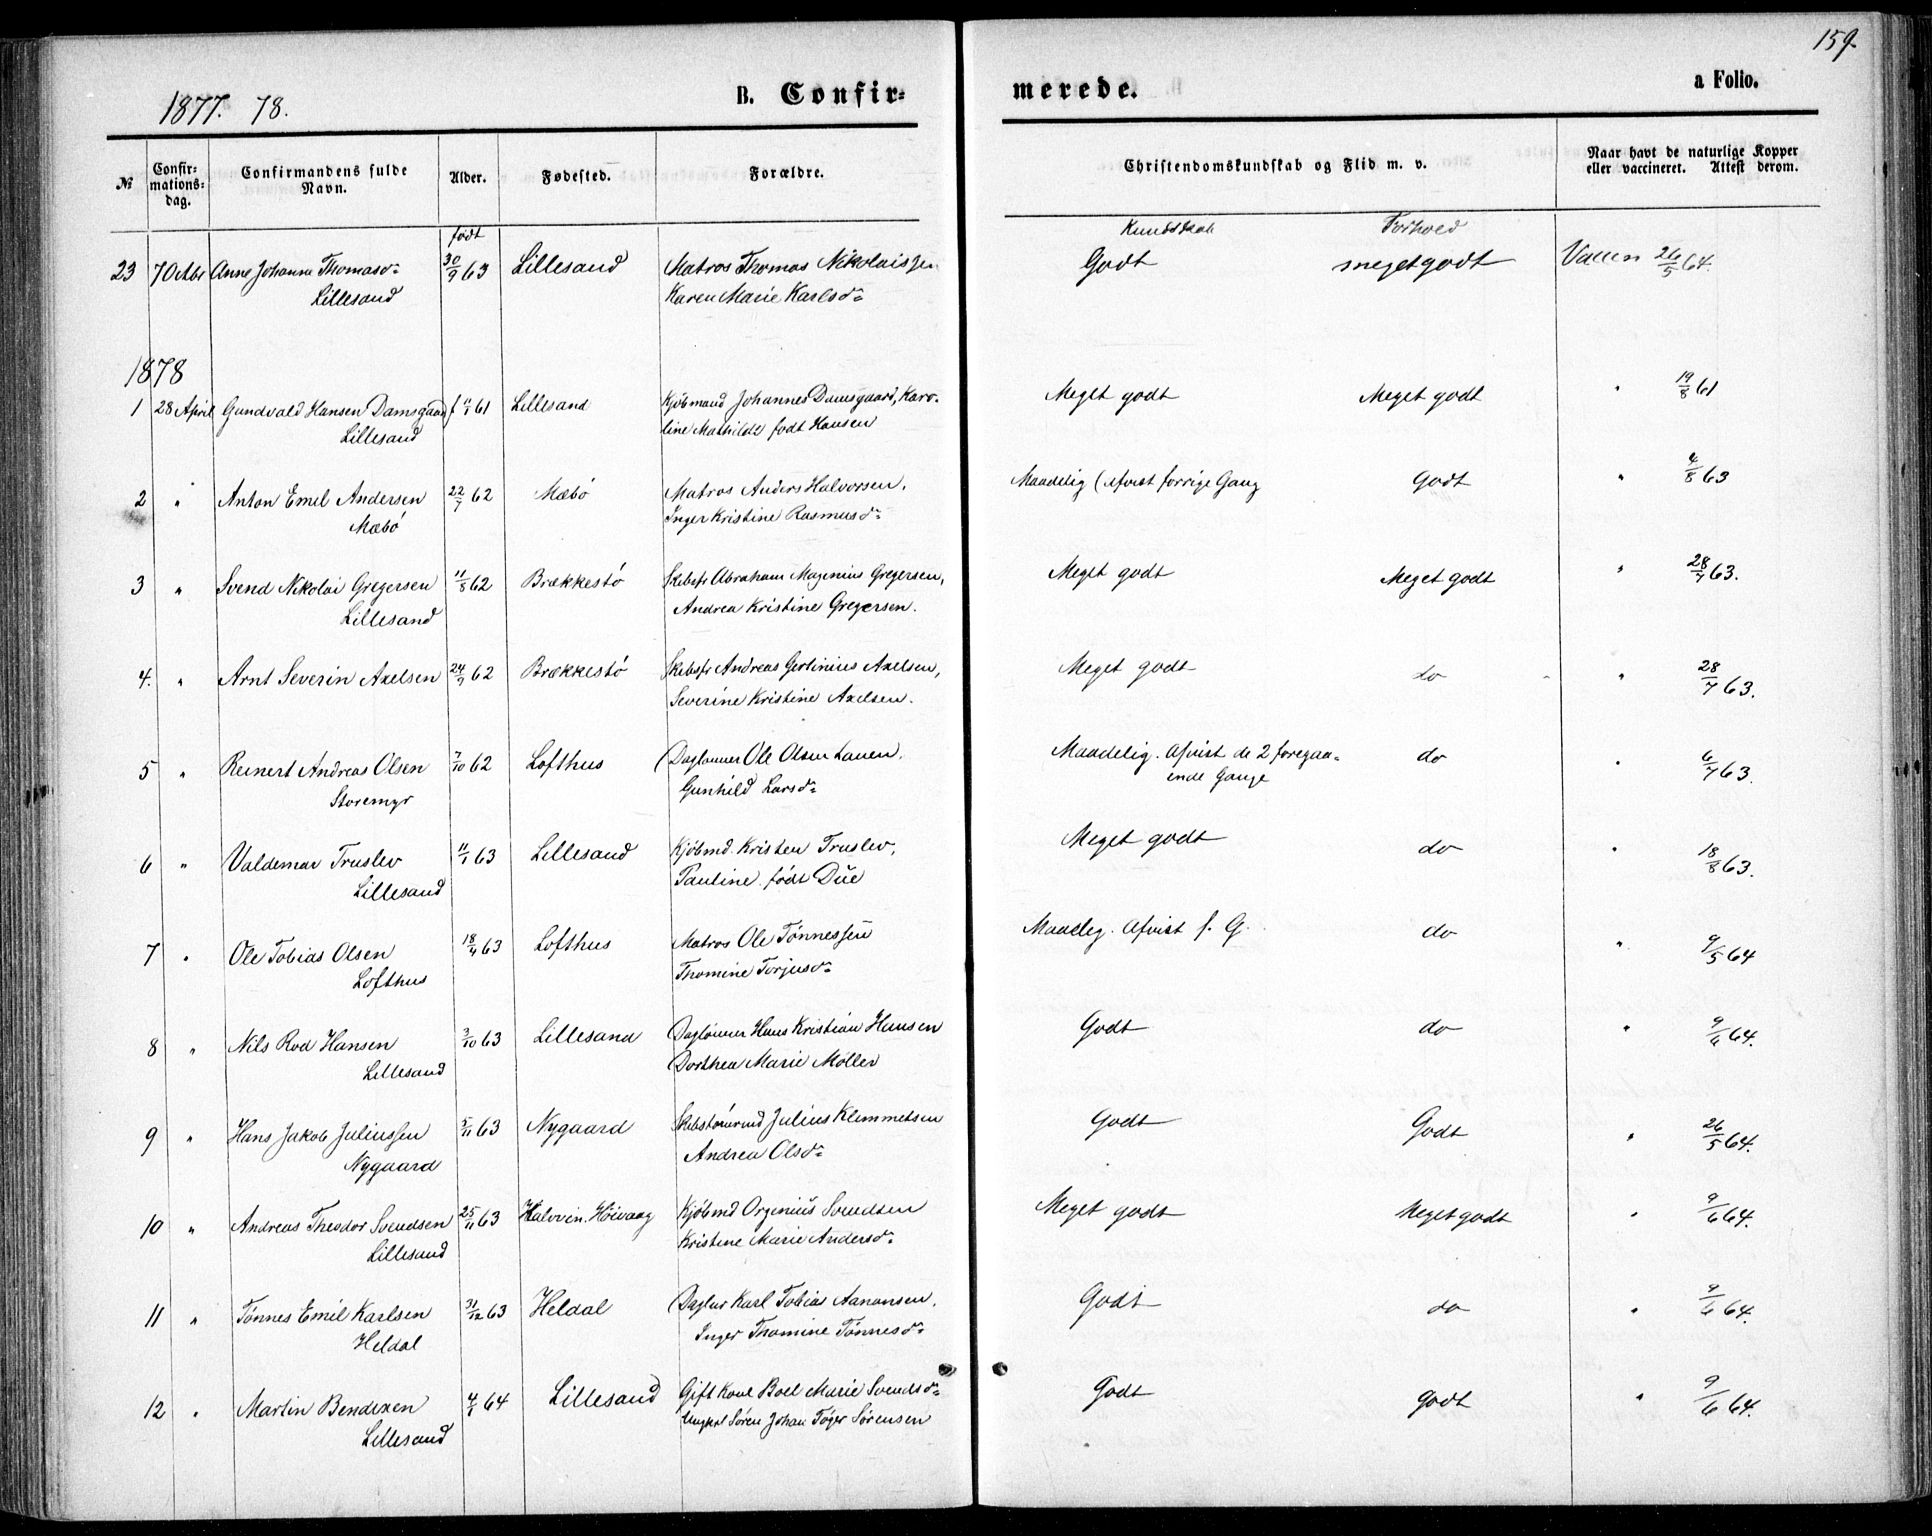 159.
1877. 78.
B. Confir=
merede.
a Folio.
№
Confir-
mations-
dag.
Confirmandens fulde
Navn.
Alder.
Fødested.
Forældre.
Christendomskundskab og Flid m. v.
Naar havt de naturlige Kopper
eller vaccineret. Attest derom.
født
Kundskab Forhold
23 7 Anne Johanne Thomasd. 30/9 63 Lillesand Matros Thomas Nikolaissen Godt meget godt 26/5 64.
Lillesand Karen Marie Karlsd.
1878
1 28 April Gundvald Hansen Damsgaard 61 Lillesand Kjøbmand Johannes Damsgaard, Karo- Meget godt Meget godt " 19/8 61
Lillesand line Mathilde født Hansen
2 " Anton Emil Andersen 22/7 62 Mæbø Matros Anders Halvorsen, Maadelig (Afvist forrige Gang Godt " 4/8 63
Mæbø Inger Kristine Rasmusd.
3 " Svend Nikolai Gregersen 11/8 62 Brækkestø Skibsfr Abraham Magenius Gregersen, Meget godt Meget godt " 28/7 63.
Lillesand Andrea Kristine Gregersen.
4. " Arnt Severin Axelsen 24/9 62 Brækkestø Skibsfr Andreas Axelsen, Meget godt do " 28/7 63.
Severine Kristine Axelsen.
5 " Reinert Andreas Olsen 7/10 62 Lofthus Daglønner Ole Olsen Lauen, Maadelig. Afvist de 2 foregaa= do " 6/7 63.
Storemyr Gunhild Larsd. ende Gange
6 " Valdemar Truslev 11/1 63 Lillesand Kjøbmd. Kristen Truslev, Meget godt do " 18/8 63.
Lillesand Pauline født Due
7 " Ole Tobias Olsen 18/4 63 Lofthus Matros Ole Tønnessen Maadeg. Afvist f. G. do " 9/5 64
Lofthus Thomine Torjusd.
8 " Nils Rod Hansen 3/10 63 Lillesand Daglønner Hans Kristian Hansen Godt do " 9/6 64.
Lillesand Dorthea Marie Møller
9 " Hans Jakob Juliussen 5/11 63 Nygaard Skibstømmd Julius Klemmetsen Godt Godt " 26/5 64.
Nygaard Andrea Olsd.
10 " Andreas Theodor Svendsen 25/11 63 Høivaag Kjøbmd Orgenius Svendsen Meget godt Meget godt " 9/6 64.
Lillesand Kristine Marie Andersd.
11 " Tønnes Emil Karlsen 31/12 63 Heldal Daglnr Karl Tobias Aanonsen, Godt do " 9/6 64.
Heldal Inger Thomine Tønnesd.
12 " Martin Bendixen 4/1 64 Lillesand Gift Kone Boel Marie Svendsd. Godt godt " 9/6 64.
Lillesand Ungkarl Søren Johan Tøger Sørensen